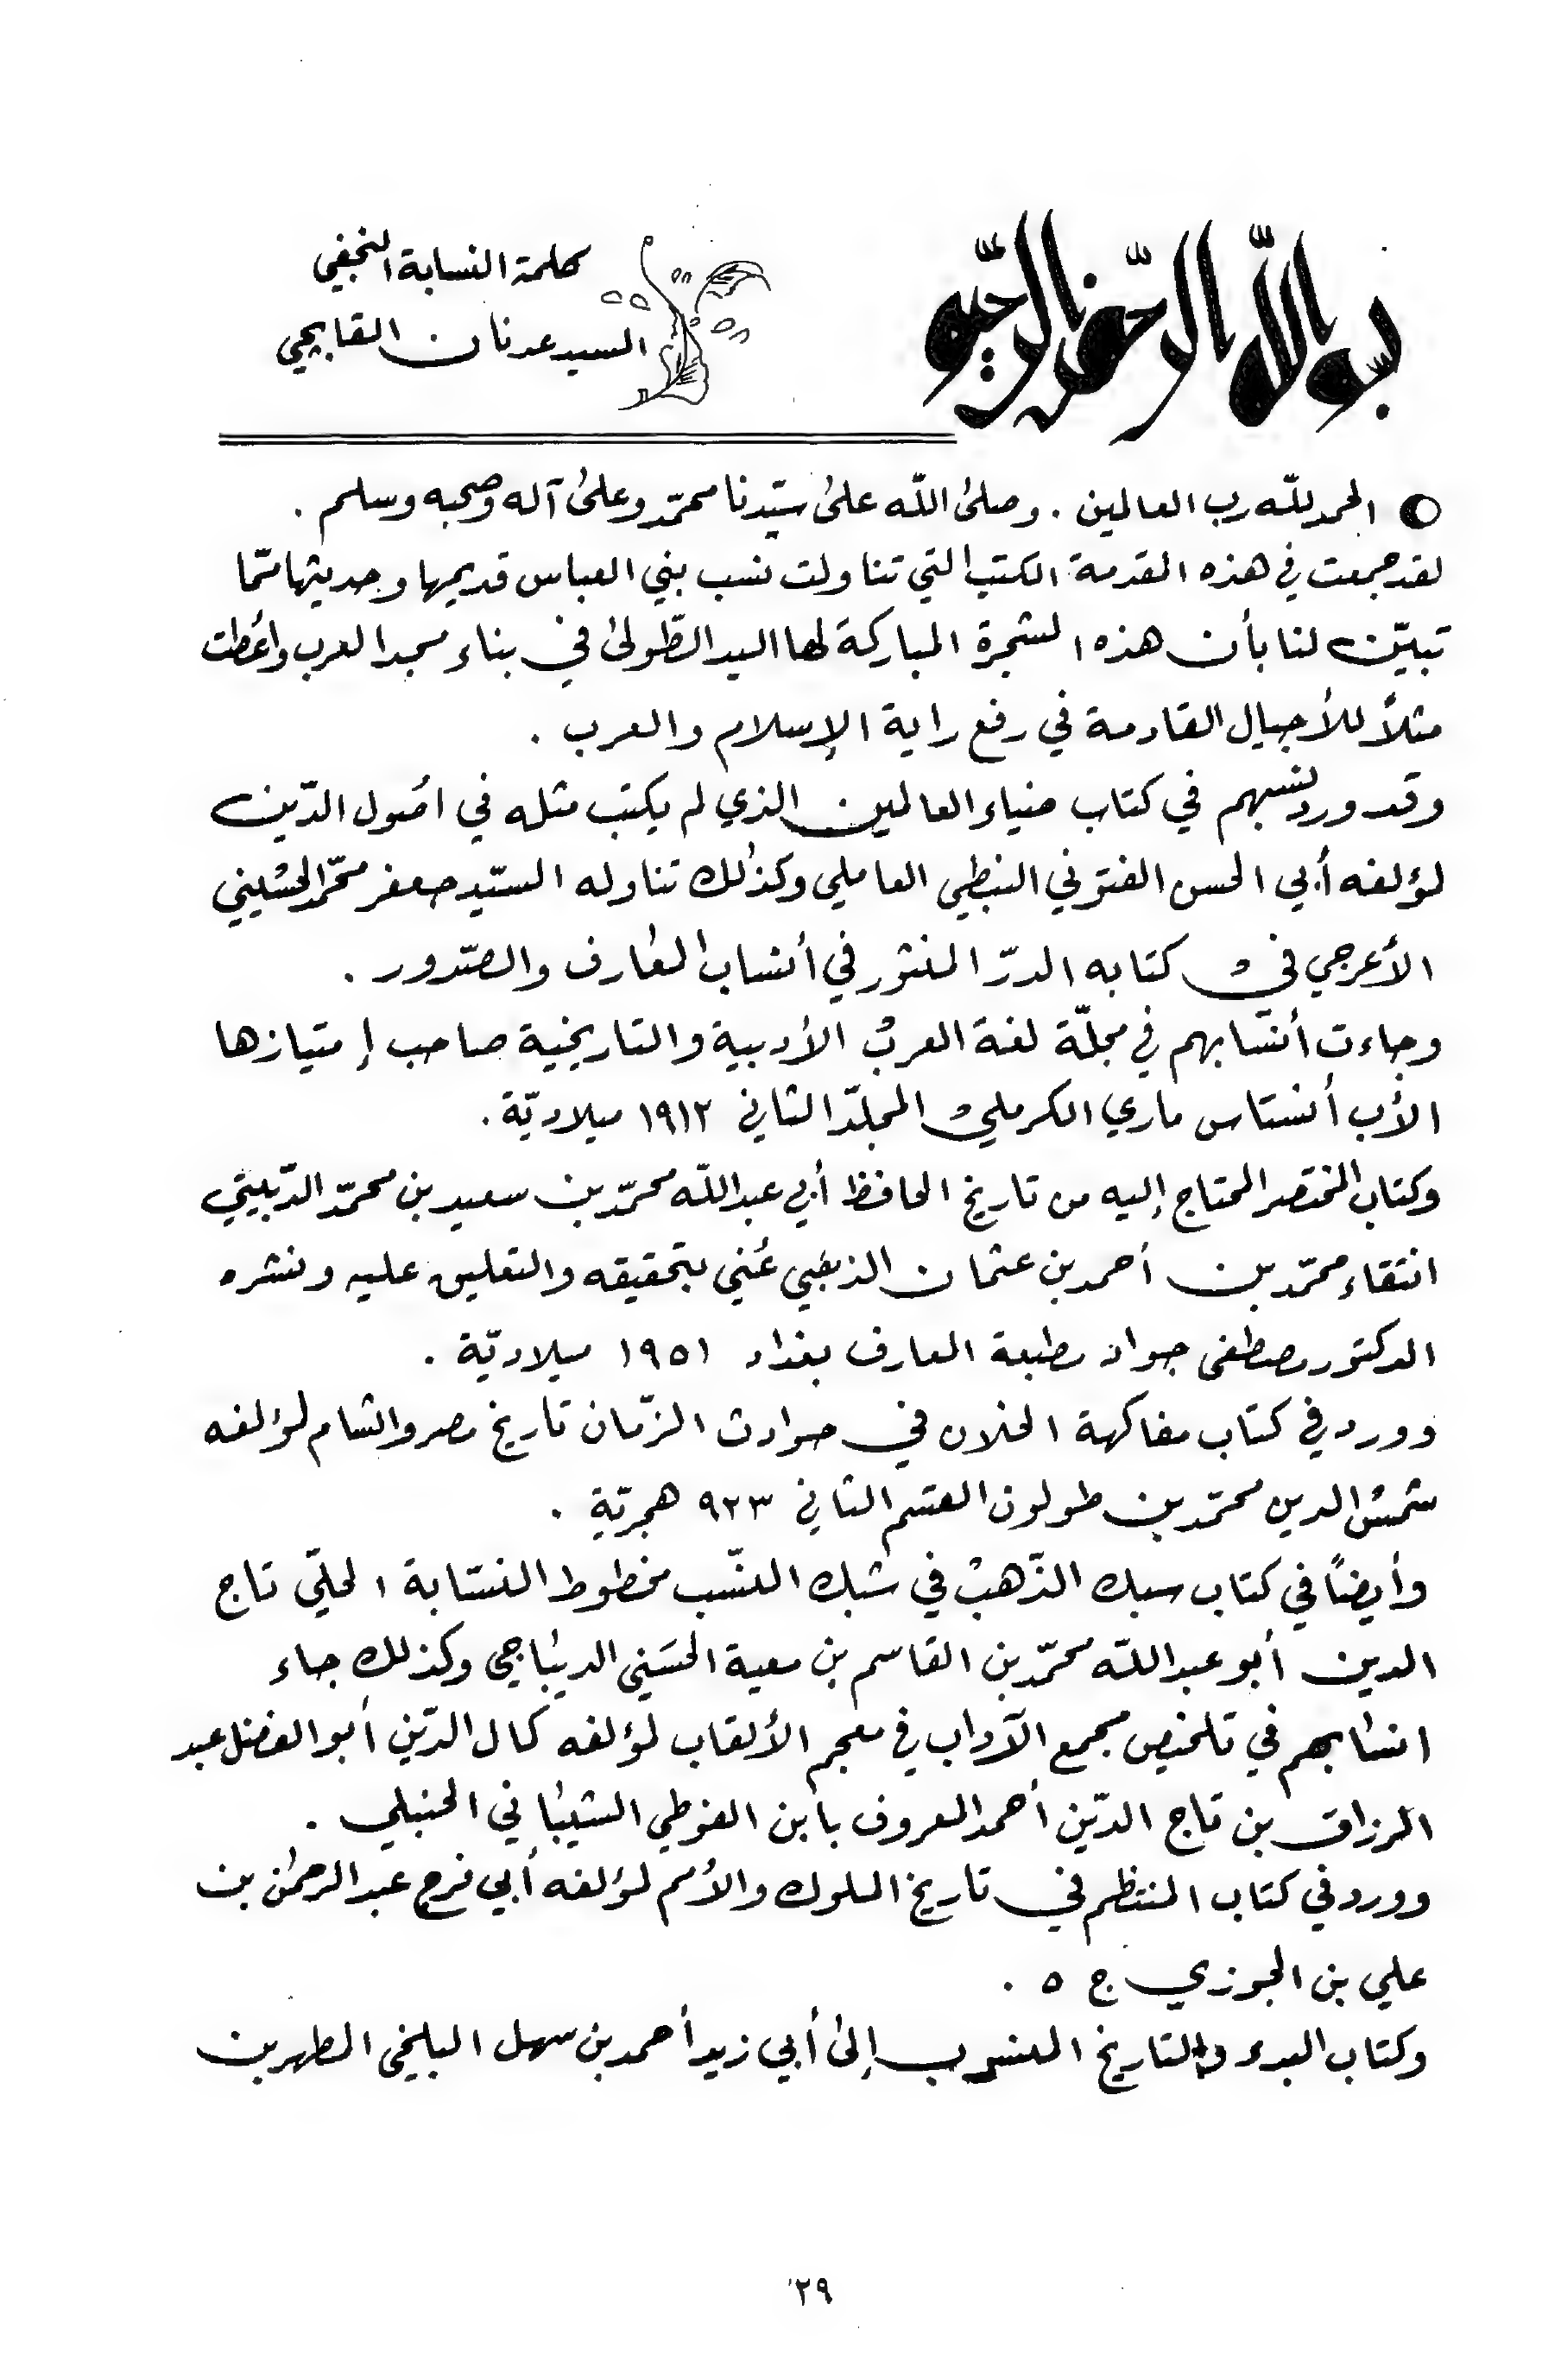 بسم الله الرحمن الرحيم
كلمة النسابة النجفي
السيد عدنان القابجي
الحمد لله رب العالمين . وصلىٰ اللّه علىٰ سيّدنا محمّد وعلىٰ آله وصحبه وسلم .
لقد جمعت في هذه المقدمة الكتب التي تناولت نسب بني العباس قديمها وحديثها ممّا
تبيّن لنا بأن هذه الشجرة المباركة لها اليد الطّولىٰ في بناء مجد العرب وأعطت
مثلاً للأجيال القادمة في رفع راية الإسلام والعرب .
وقد ورد نسبهم في كتاب ضياء العالمين الذي لم يكتب مثله في اصُول الدّين
لمؤلفه أبي الحسن الفتوني النبطي العاملي وكذٰلك تناوله السيّد جعفر محمّد الحسيني
الأعرجي في كتابه الدرّ المنثور في أنساب المعارف والصّدور .
وجاءت أنسابهم في مجلّة لغة العرب الأدبية والتاريخية صاحب إمتيازها
الأب أنستاس ماري الكرملي المجلّد الثاني ١٩١٢ ميلاديّة .
وكتاب المختصر المحتاج إليه من تاريخ الحافظ أبي عبد اللّه محمّد بن سعيد بن محمّد الدّبيثي
انتقاء محمّد بن أحمد بن عثمان الذهبي عُني بتحقيقه والتعليق عليه ونشره
الدكتور مصطفى جواد مطبعة المعارف بغداد ١٩٥١ ميلاديّة .
وورد في كتاب مفاكهة الخلان في حوادث الزّمان تاريخ مصر والشام لمؤلفه
شمس الدين محمّد بن طولون القسم الثاني ٩٢٣ هجريّة .
وأيضاً في كتاب سبك الذّهب في شبك النسّب مخطوط النسّابة الحلّي تاج
الدين أبو عبد اللّه محمّد بن القاسم بن معية الحسَني الديباجي وكذلك جاء
انسابهم في تلخيص مجمع الآداب في معجم الألقاب لمؤلفه كمال الدّين أبو الفضل عبد
الرزاق بن تاج الدّين أحمد المعروف بأبن الفوطي الشيباني الحنبلي .
وورد في كتاب المنتظم في تاريخ الملوك والأمم لمؤلفه أبي فرج عبد الرحمٰن بن
علي بن الجوزي ج ٥ .
وكتاب البدء والتاريخ المنسوب إلىٰ أبي زيد أحمد بن سهل البلخي المطهر بن
٢٩